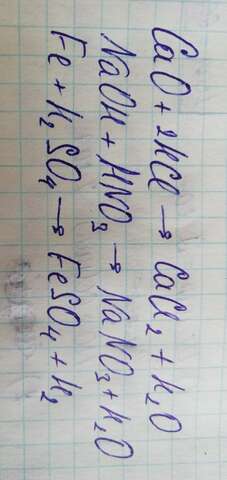 CaO + 2HCl → CaCl₂ + H₂O
NaOH + HNO₃ → NaNO₃ + H₂O
Fe + H₂SO₄ → FeSO₄ + H₂